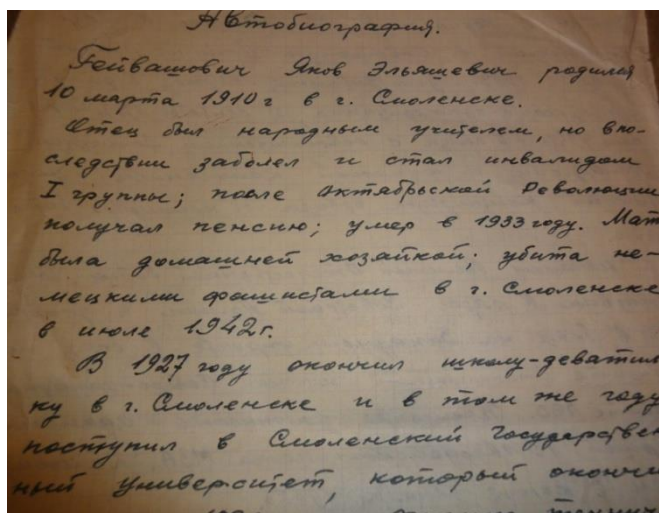 Автобиография.
Гейвашович Яков Эльяшевич родился
10 марта 1910 г в г. Смоленске.
Отец был народным учителем, но впо-
следствии заболел и стал инвалидом
I группы; после октябрьской Революции
получал пенсию; умер в 1933 году. Мат
была домашней хозяйкой; убита не-
мецкими фашистами в г. Смоленске
в июле 1942 г.
В 1927 году окончил школу-девятил
ку в г. Смоленске и в том же году
поступил в Смоленский Государствен
ный университет, который окончи